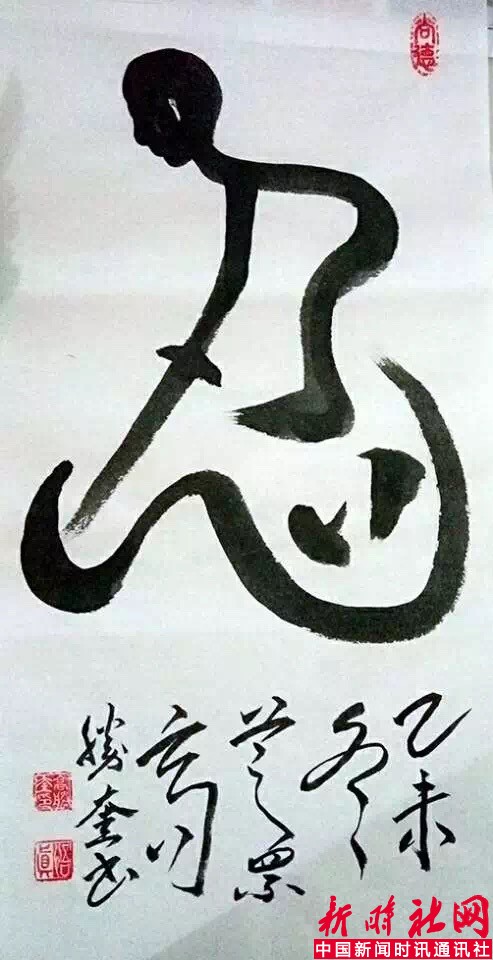 尚德
忍
乙未
冬
高
勝奎书
新时社网
中国新闻时讯通讯社